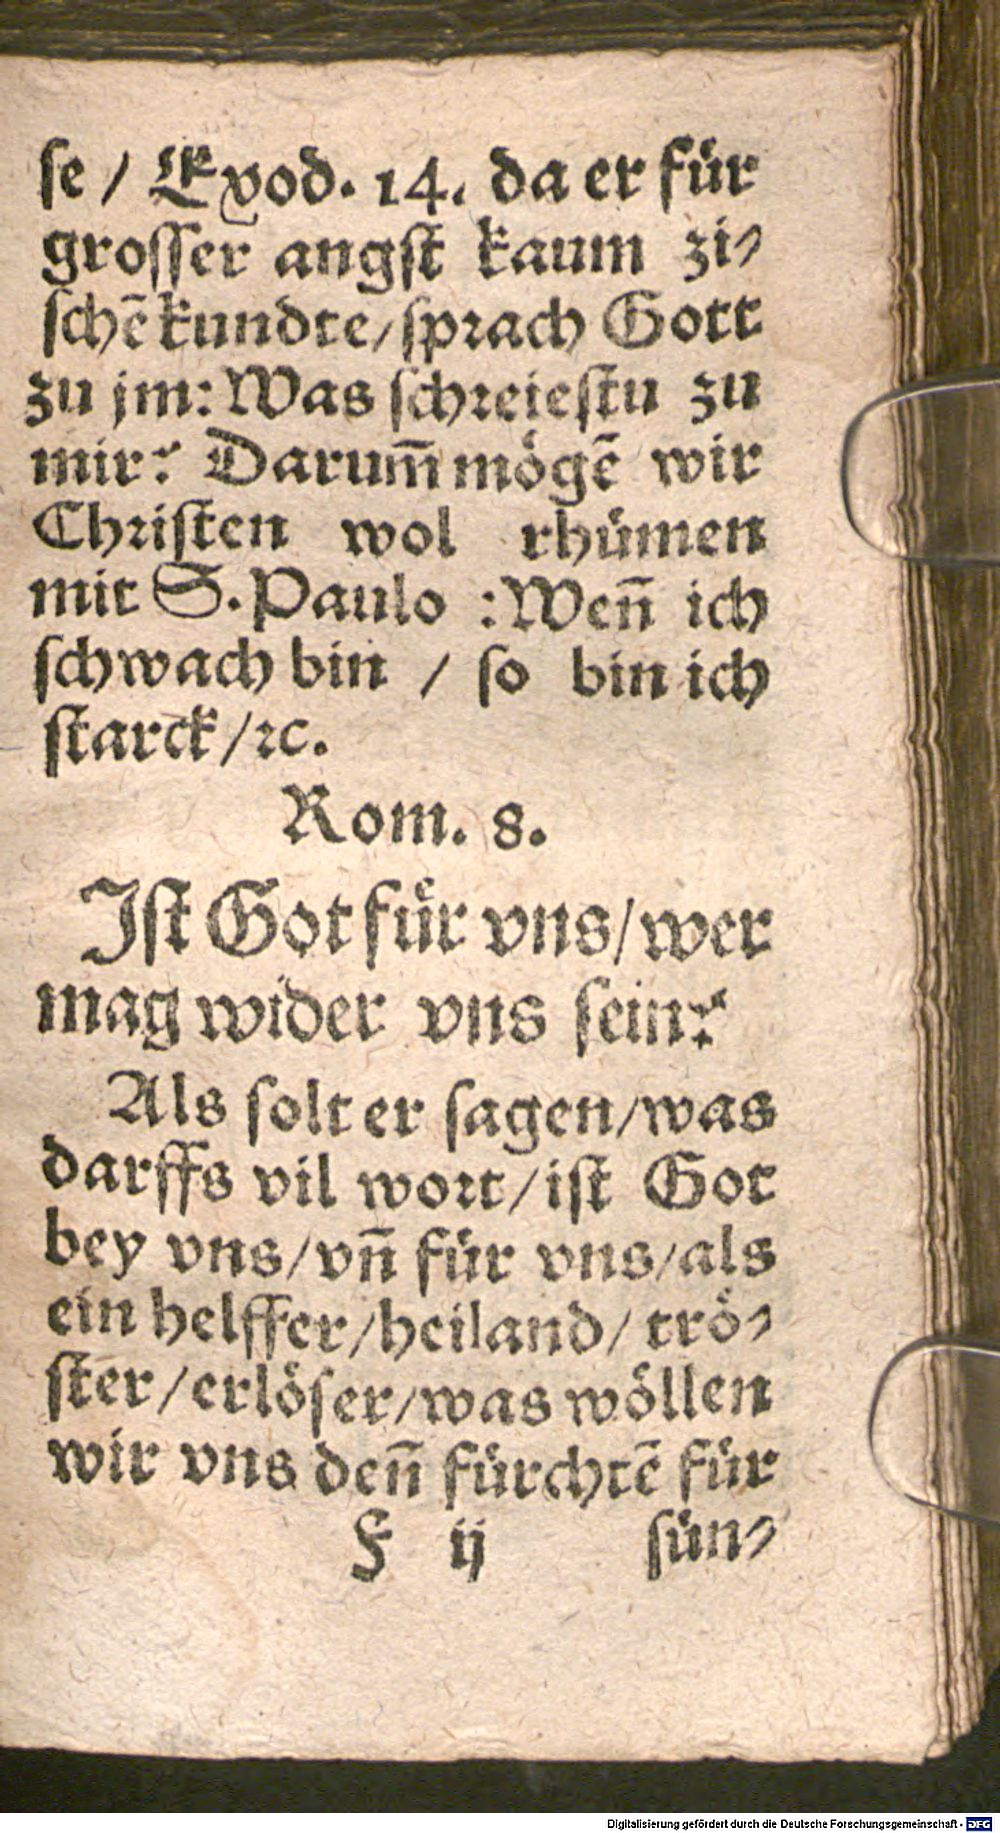 se / Exod. 14. da er für
grosser angst kaum zi-
schē kundte/sprach Gott
zu jm: Was schreiestu zu
mir? Darum̄ mögē wir
Christen wol rhümen
mit S. Paulo : Wen̄ ich
schwach bin / so bin ich
starck/ꝛc.
Rom. 8.
Ist Got fuͤr vns/wer
mag wider vns sein?
Als solt er sagen/was
darffs vil wort/ist Got
bey vns/vn̄ für vns/als
ein helffer/heiland/ trö-
ster/erlöser/was wöllen
wir vns den̄ fürchtē für
F ij sün-
Digitalisierung gefördert durch die Deutsche Forschungsgemeinschaft - DFG